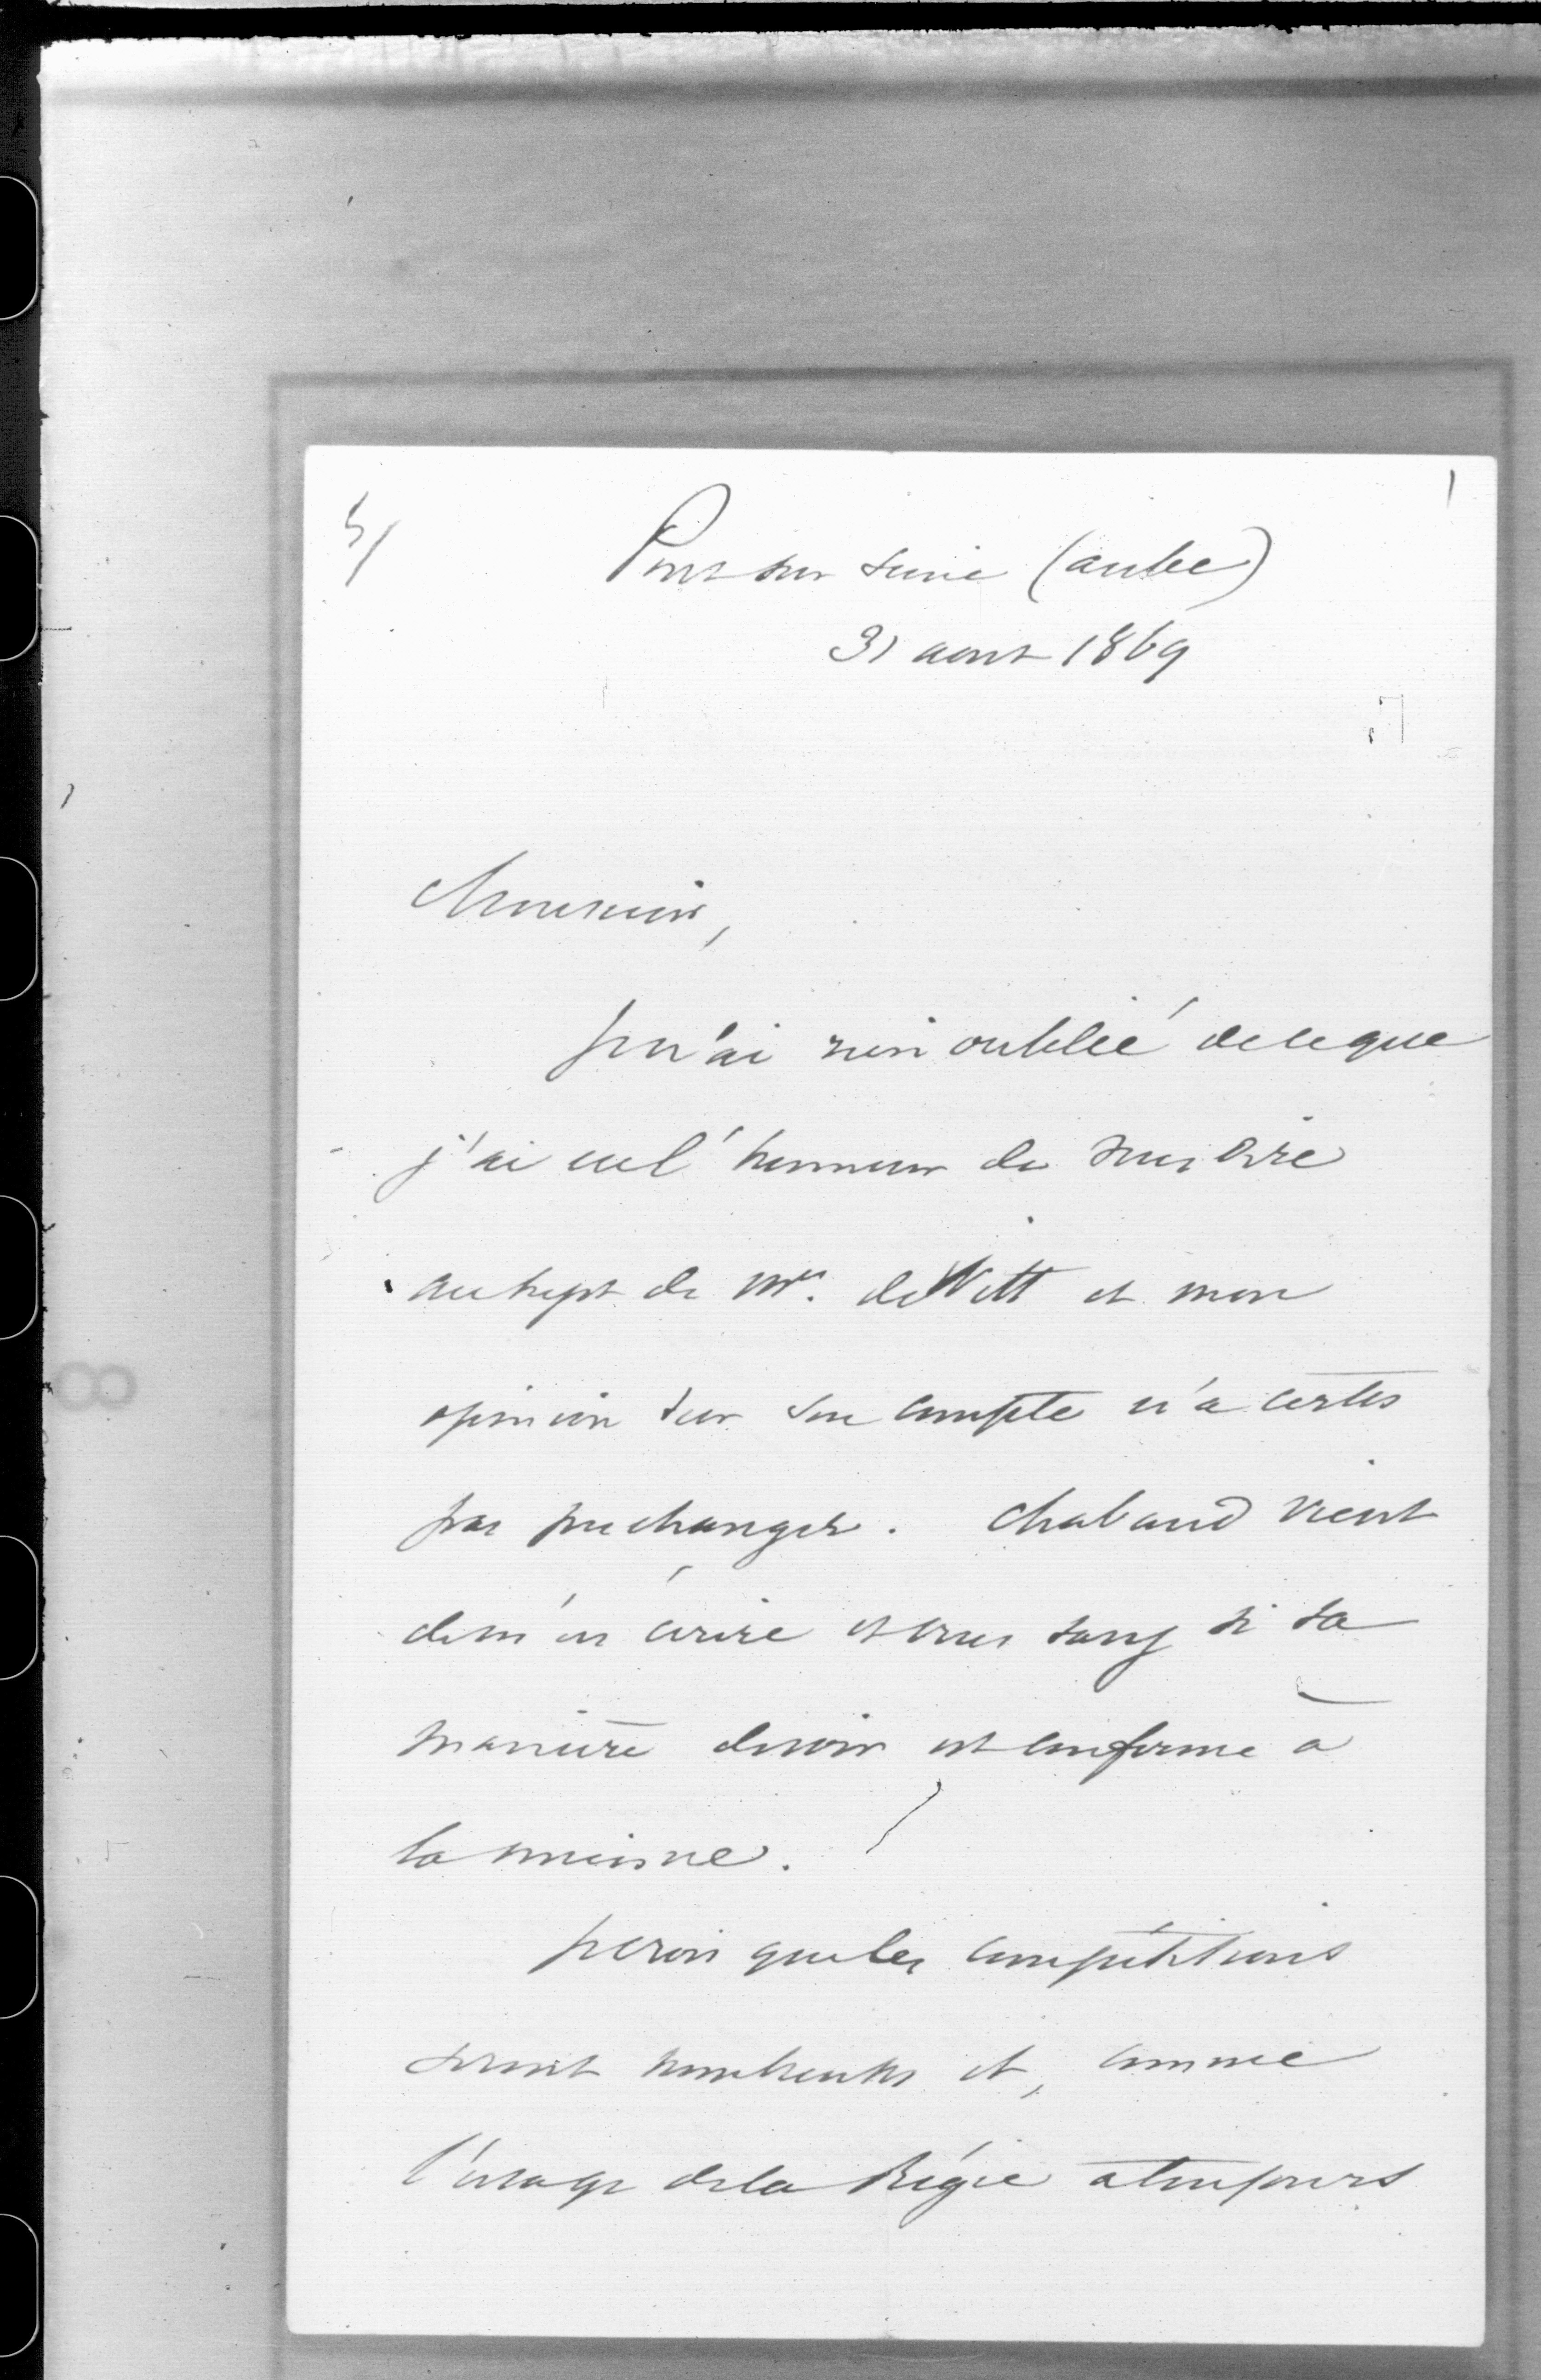 5/
Pont sur Seine (aube)
31 aout 1869
Monsieur,
je n'ai rien oublié de ce que
j'ai eu l'honneur de vous dire
au sujet de Mr. de Witt et mon
opinion sur son compte n'a certes
pas pu changer. Chabaud vient
de m'en écrire et vous savez si sa
manière de voir est conforme à
la mienne.
je crois que les compétitions
seront nombreuses et, comme
l'usage de la Régie a toujours